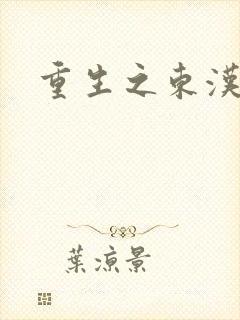 重生之東漢
葉涼景